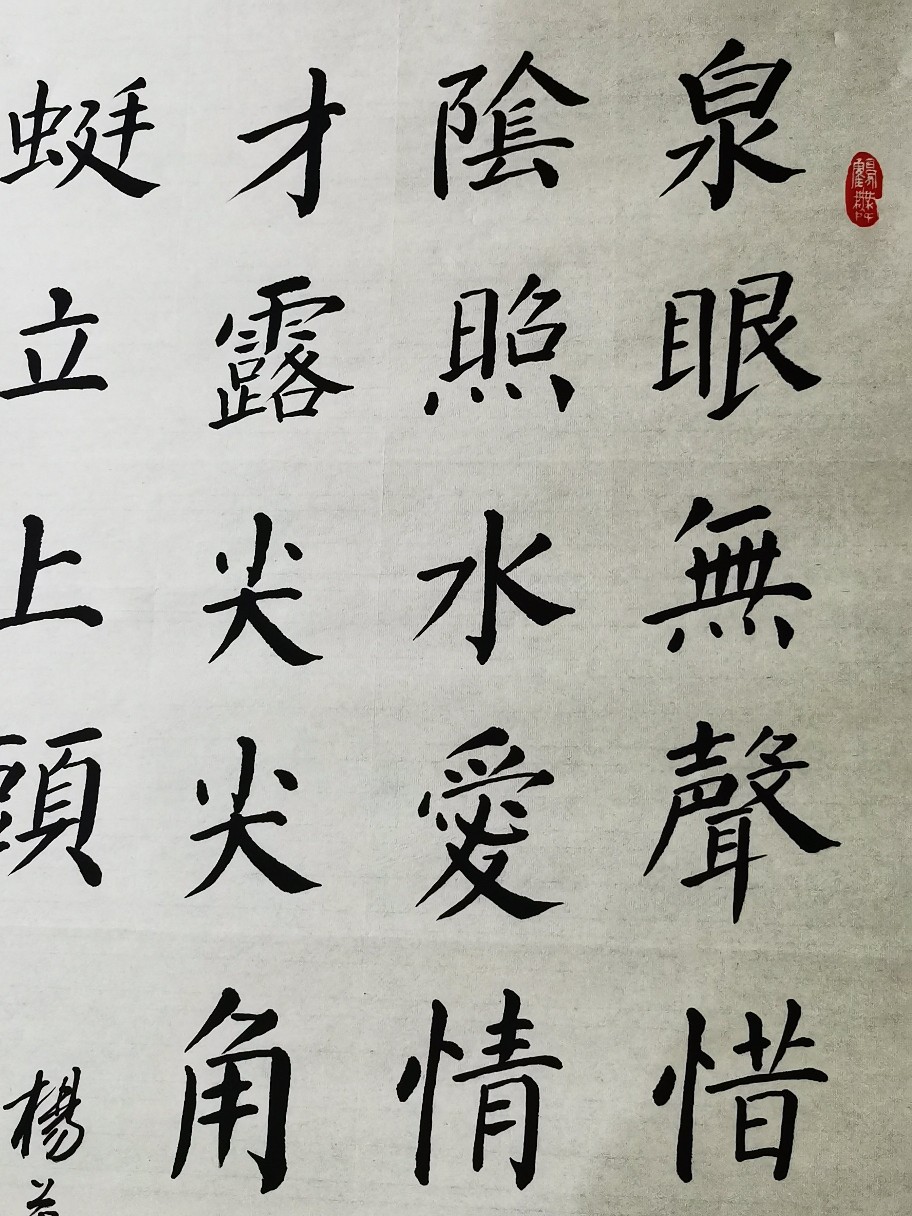 泉眼無聲惜
隂照水愛情
才露尖尖角
蜓立上頭
楊